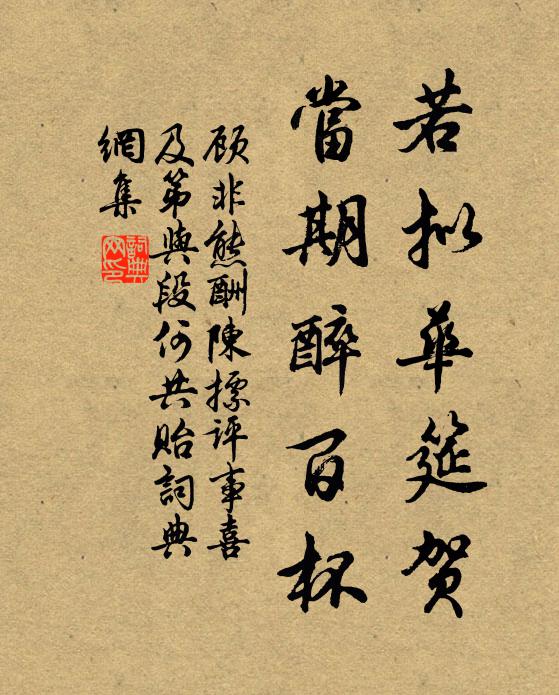 若拟華筵賀
當期醉百杯
顾非熊酬陳摽评事喜
及第與段何共贻詞典
網集
詞典網印